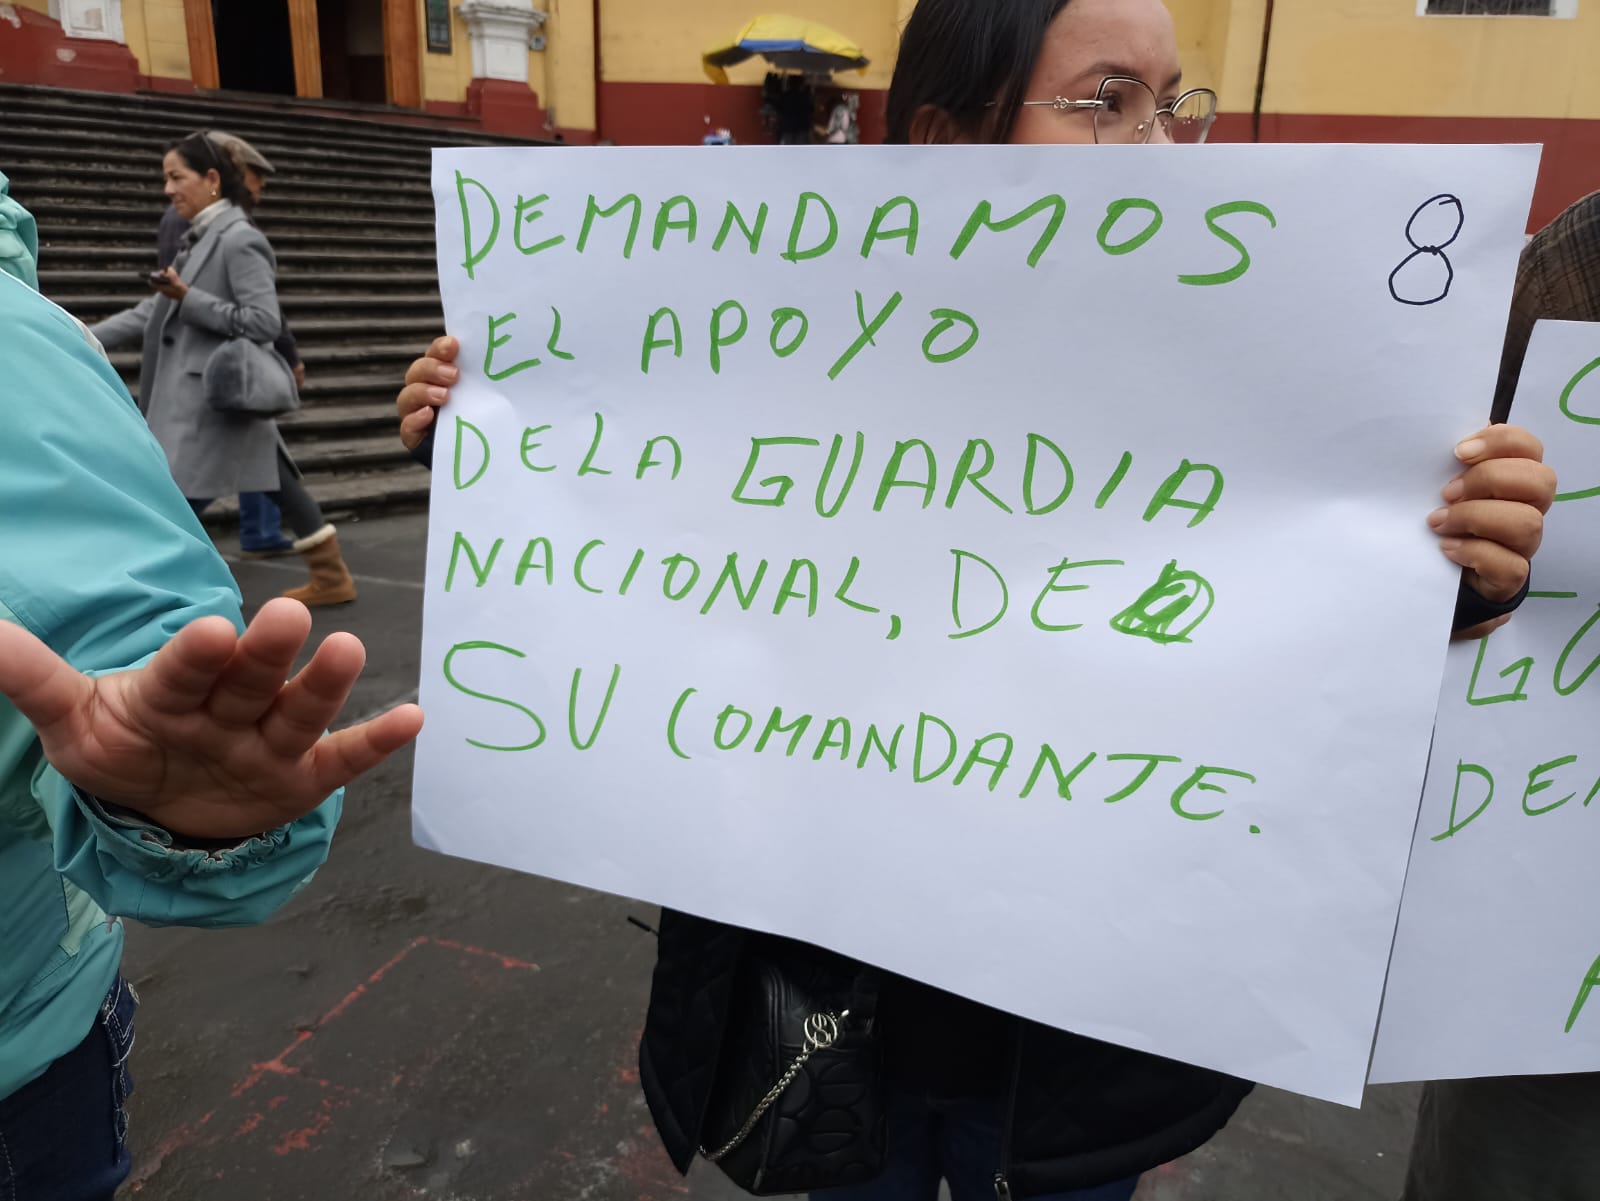 DEMANDAMOS 8
EL APOYO
DE LA GUARDIA
NACIONAL, DE
SU COMANDANTE.